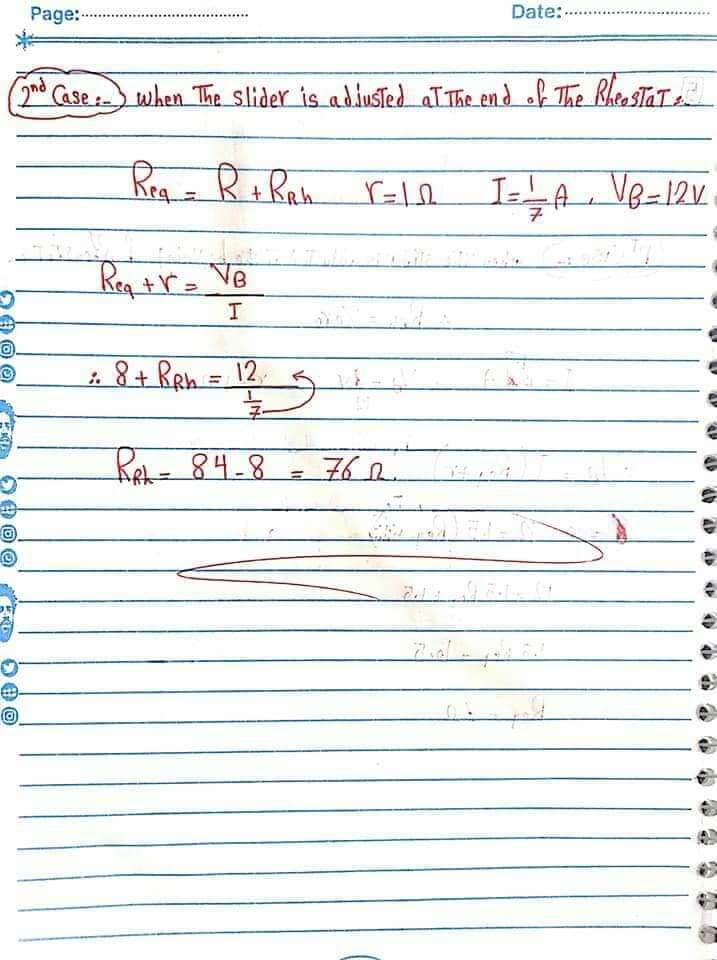 Page: Date:
2nd Case:- when The slider is adjusted at The end of The RheosTaT:-
Req = R + RRh r=1Ω I=1/7 A, VB=12V
Req + r = VB/I
∴ 8 + RRh = 12/(1/7)
RRh = 84-8 = 76 Ω